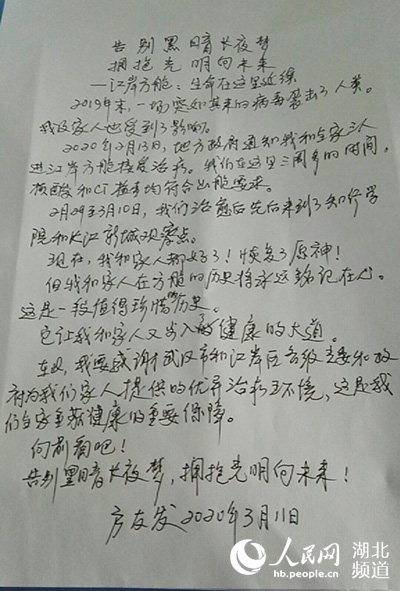 告别黑暗长夜梦
拥抱光明向未来
—江岸方舱：生命在这里延续
2019年末，一场突如其来的病毒袭击了人类。
我及家人也受到了影响。
2020年2月13日，地方政府通知我和全家三人
进江岸方舱接受治疗。我们在这里三周多的时间，
核酸和CT检查均符合出舱要求。
2月29至3月10日，我们治愈后先后来到了知行学
院和长江新城观察点。
现在，我和家人都好了！恢复了原神！
但我和家人在方舱的历史将永远铭记在心。
这是一段值得珍惜的历史。
它让我和家人又步入了健康的大道。
在此，我要感谢武汉市和江岸区各级党委和政
府为我们家人提供的优异治疗环境，这是我
们全家重获健康的重要保障。
向前看吧！
告别黑暗长夜梦，拥抱光明向未来！
方友发 2020年3月11日
人民网 湖北频道
hb.people.cn